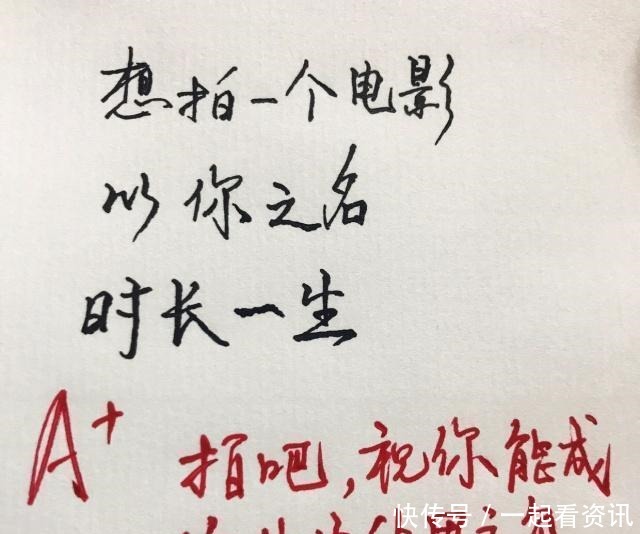 想拍一个电影
以你之名
时长一生
A+
拍吧,祝你能成
快传号/一起看资讯